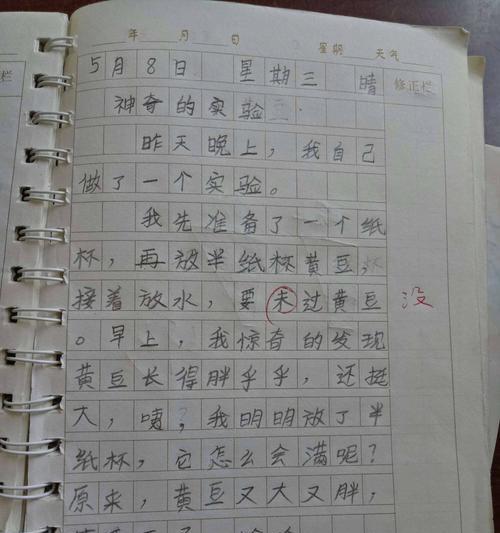 年 月 日 星期 天气
5月8日 星期三 晴 修正栏
神奇的实验
昨天晚上，我自己
做了一个实验。
我先准备了一个纸
杯，再放半纸杯黄豆，
接着放水，要未过黄豆 没
。早上，我惊奇的发现
黄豆长得胖乎乎，还挺
大，咦？我明明放了半
纸杯，它怎么会满呢？
原来，黄豆又大又胖，